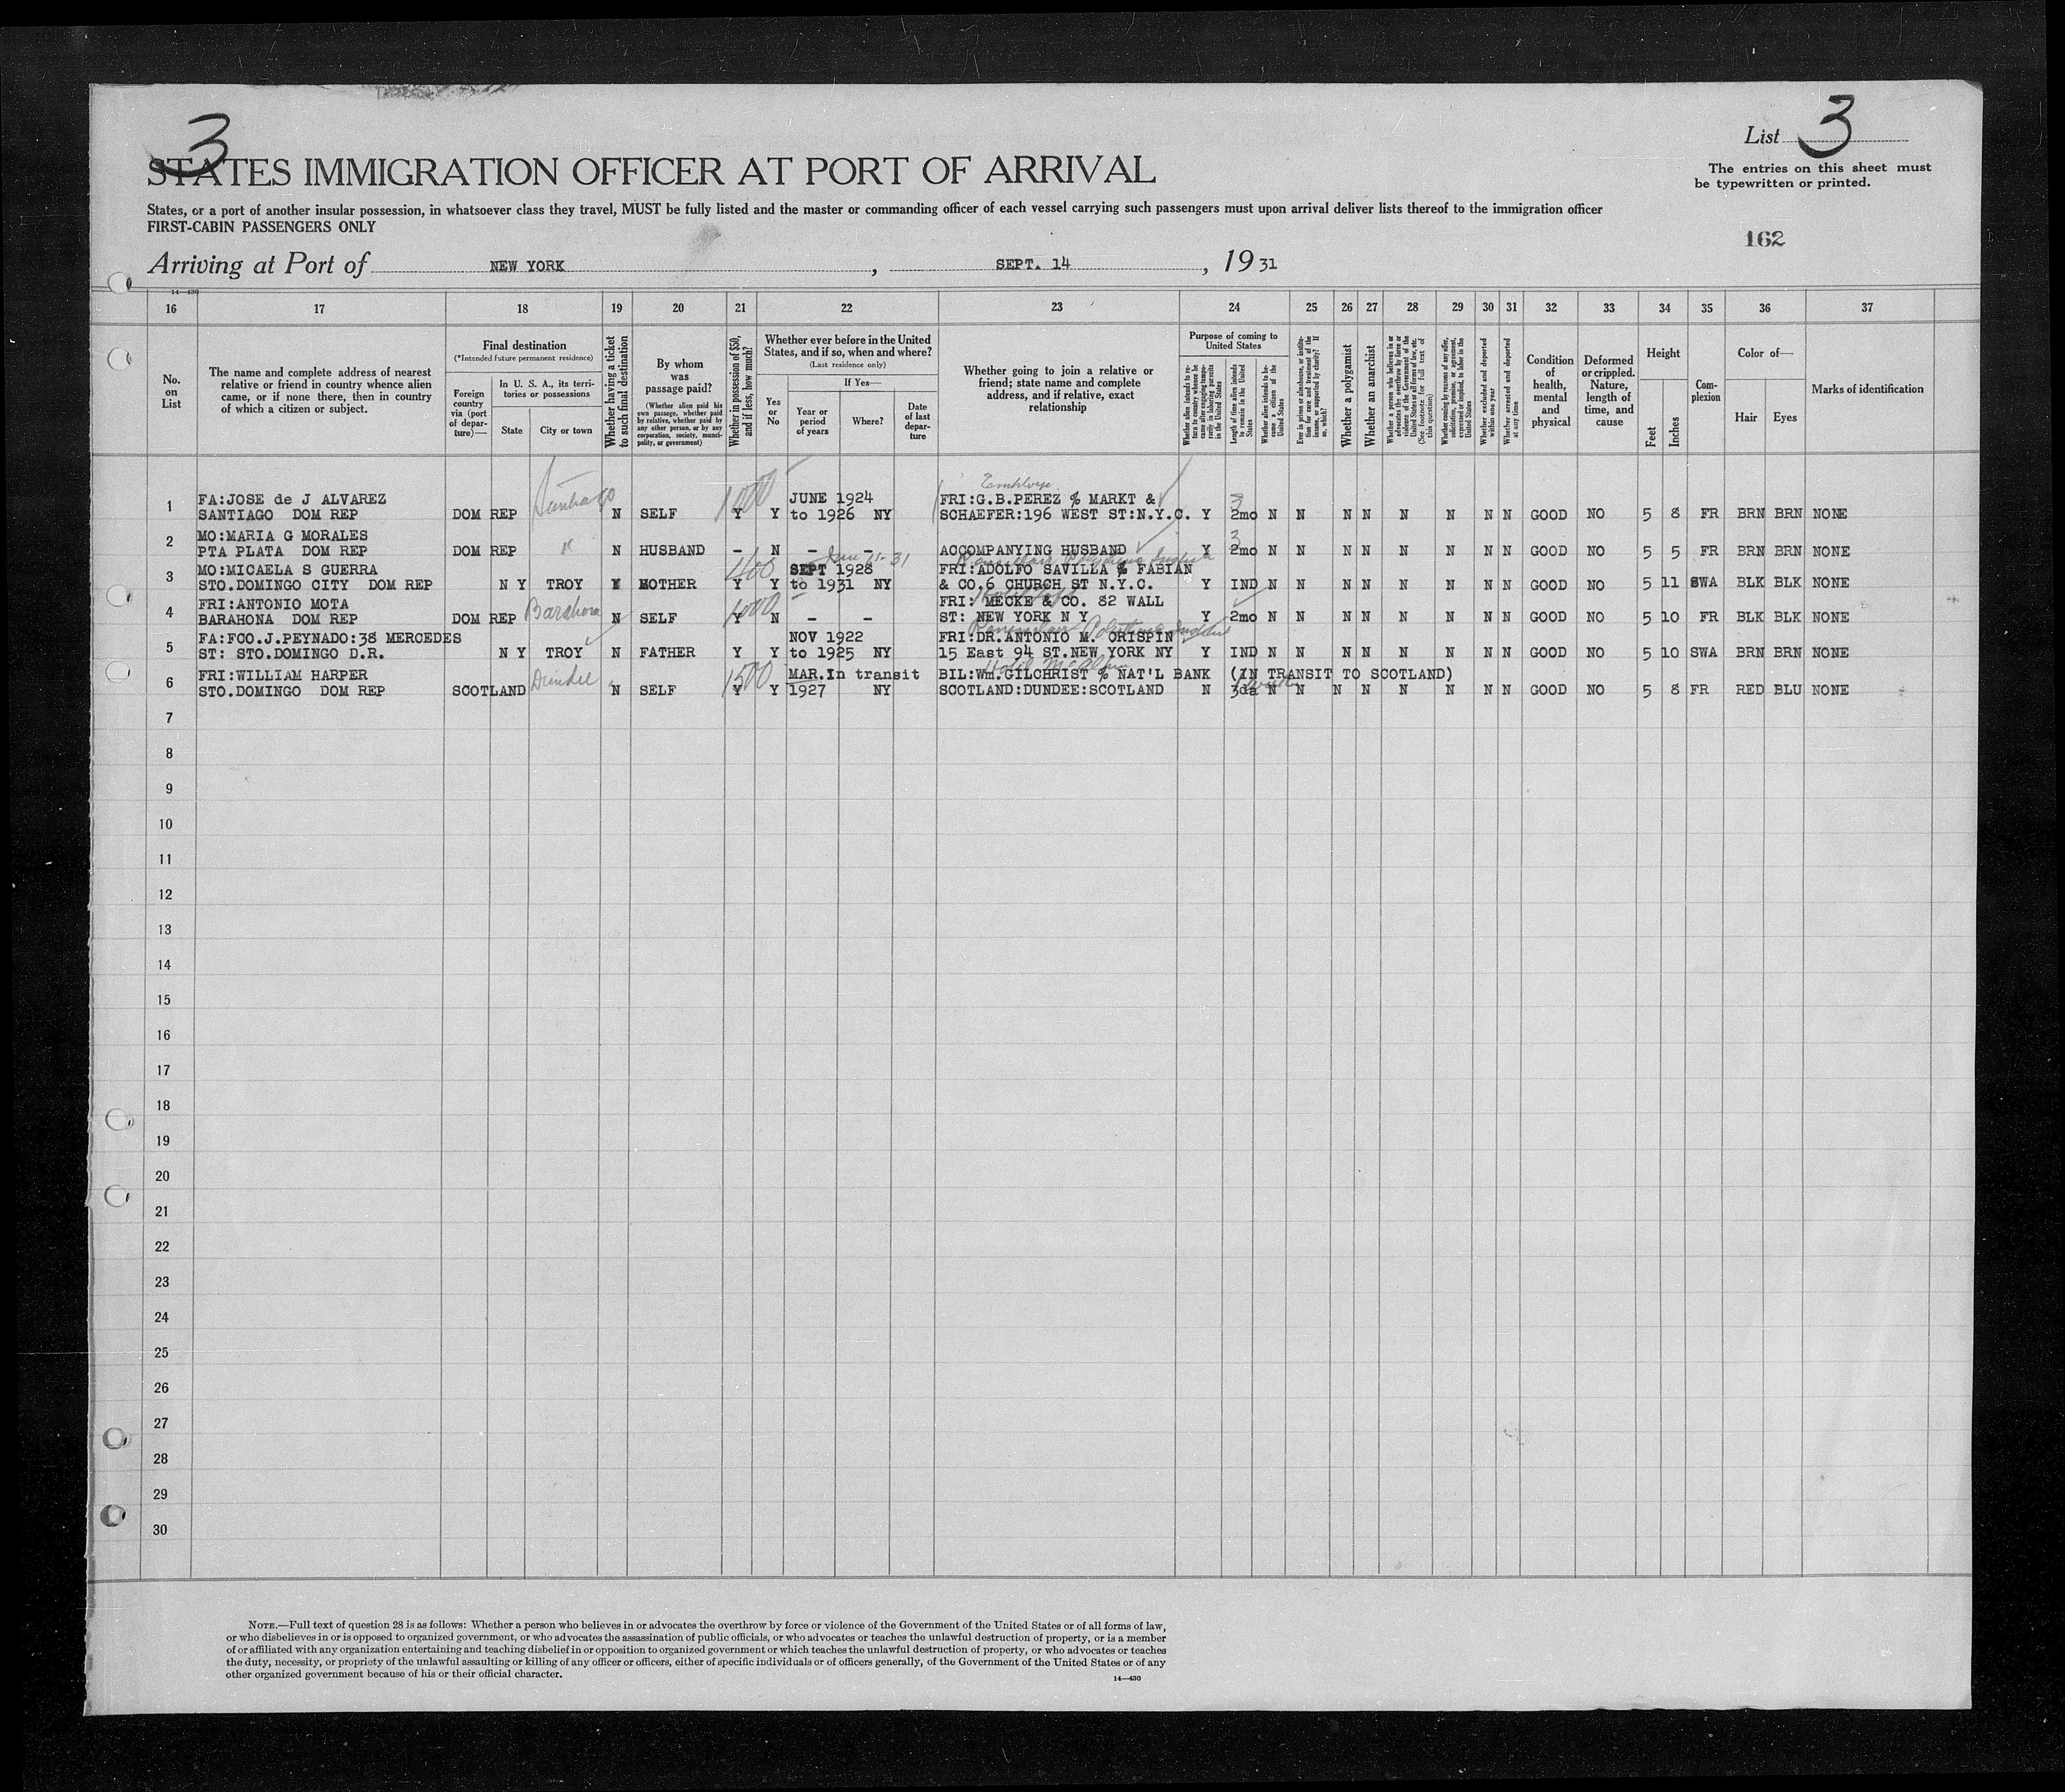 3
List 3
STATES IMMIGRATION OFFICER AT PORT OF ARRIVAL
The entries on this sheet must
be typewritten or printed.
States, or a port of another insular possession, in whatsoever class they travel, MUST be fully listed and the master or commanding officer of each vessel carrying such passengers must upon arrival deliver lists thereof to the immigration officer
FIRST-CABIN PASSENGERS ONLY
162
Arriving at Port of NEW YORK, SEPT. 14, 19 31
14—430
16 17 18 19 20 21 22 23 24 25 26 27 28 29 30 31 32 33 34 35 36 37
No. on List
The name and complete address of nearest relative or friend in country whence alien came, or if none there, then in country of which a citizen or subject.
Final destination
(*Intended future permanent residence)
Foreign country via (port of departure)—
In U. S. A., its territories or possessions
State
City or town
Whether having a ticket to such final destination
By whom was passage paid?
(Whether alien paid his own passage, whether paid by relative, whether paid by any other person, or by any corporation, society, municipality, or government)
Whether in possession of $50, and if less, how much?
Whether ever before in the United States, and if so, when and where?
(Last residence only)
Yes or No
If Yes—
Year or period of years
Where?
Date of last departure
Whether going to join a relative or friend; state name and complete address, and if relative, exact relationship
Purpose of coming to United States
Whether alien intends to return to country whence he came after engaging temporarily in laboring pursuits in the United States
Length of time alien intends to remain in the United States
Whether alien intends to become a citizen of the United States
Ever in prison or almshouse, or institution for care and treatment of the insane, or supported by charity? If so, which?
Whether a polygamist
Whether an anarchist
Whether a person who believes in or advocates the overthrow by force or violence of the Government of the United States or all forms of law, etc. (See footnote for full text of this question)
Whether coming by reason of any offer, solicitation, promise, or agreement, expressed or implied, to labor in the United States
Whether excluded and deported within one year
Whether arrested and deported at any time
Condition of health, mental and physical
Deformed or crippled. Nature, length of time, and cause
Height
Feet
Inches
Complexion
Color of—
Hair
Eyes
Marks of identification
Employe
FA:JOSE de J ALVAREZ JUNE 1924 FRI:G.B.PEREZ % MARKT &
1 SANTIAGO DOM REP DOM REP Santiago N SELF 1000 Y Y to 1926 NY SCHAEFER:196 WEST ST:N.Y.C. Y 3 2mo N N N N N N N N GOOD NO 5 8 FR BRN BRN NONE
MO:MARIA G MORALES
2 PTA PLATA DOM REP DOM REP " N HUSBAND - N - - ACCOMPANYING HUSBAND Y 3 2mo N N N N N N N N GOOD NO 5 5 FR BRN BRN NONE
MO:MICAELA S GUERRA SEPT 1928 FRI:ADOLFO SAVILLA % FABIAN
3 STO.DOMINGO CITY DOM REP N Y TROY MOTHER 400 Y Y to 1931 NY & CO,6 CHURCH ST N.Y.C. Y IND N N N N N N N N GOOD NO 5 11 SWA BLK BLK NONE
FRI:ANTONIO MOTA FRI: MECKE & CO. 82 WALL
4 BARAHONA DOM REP DOM REP Barahona N SELF 1000 Y N - - ST: NEW YORK N Y Y 2mo N N N N N N N N GOOD NO 5 10 FR BLK BLK NONE
Rensselaer Polytechnic Institute
FA:FCO.J.PEYNADO:38 MERCEDES NOV 1922 FRI:DR.ANTONIO M. CRISPIN
5 ST: STO.DOMINGO D.R. N Y TROY N FATHER Y Y to 1925 NY 15 East 94 ST.NEW YORK NY Y IND N N N N N N N N GOOD NO 5 10 SWA BRN BRN NONE
Hotel McAlpin
FRI:WILLIAM HARPER MAR.In transit BIL:Wm.GILCHRIST % NAT'L BANK (IN TRANSIT TO SCOTLAND)
6 STO.DOMINGO DOM REP SCOTLAND Dundee N SELF 1500 Y Y 1927 NY SCOTLAND:DUNDEE:SCOTLAND N 3da N N N N N N N N GOOD NO 5 8 FR RED BLU NONE
7
8
9
10
11
12
13
14
15
16
17
18
19
20
21
22
23
24
25
26
27
28
29
30
NOTE.—Full text of question 28 is as follows: Whether a person who believes in or advocates the overthrow by force or violence of the Government of the United States or of all forms of law,
or who disbelieves in or is opposed to organized government, or who advocates the assassination of public officials, or who advocates or teaches the unlawful destruction of property, or is a member
of or affiliated with any organization entertaining and teaching disbelief in or opposition to organized government or which teaches the unlawful destruction of property, or who advocates or teaches
the duty, necessity, or propriety of the unlawful assaulting or killing of any officer or officers, either of specific individuals or of officers generally, of the Government of the United States or of any
other organized government because of his or their official character.
14—430